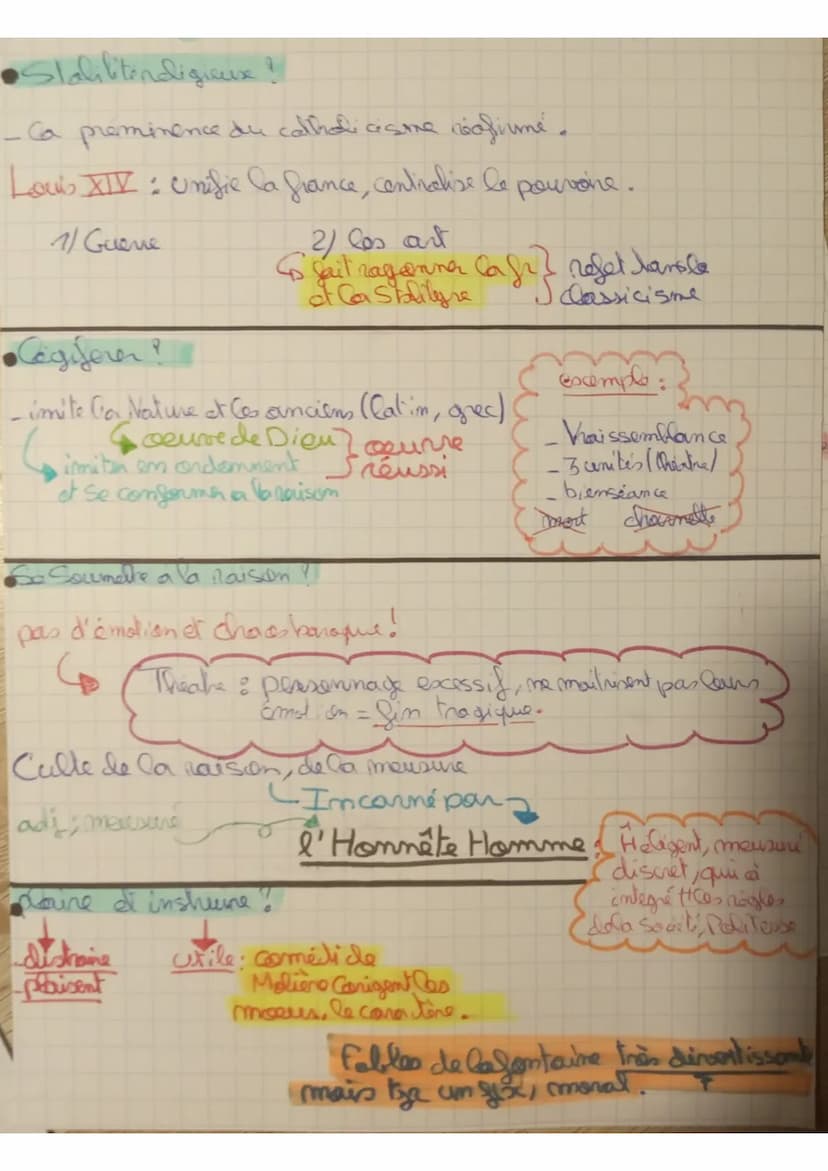 Stabilité religieux ?
- La preminence du catholicisme réafirmé.
Louis XIV : unifie la france, centralise le pouvoire.
1/ Guerre
2/ Les art
fait rayonner la fr
et la
refet dans le
classicisme
Légiferer ?
- imite la Nature et les anciens (latin, grec)
oeuvre de Dieu
oeuvre
réussi
imiter en ordonnent
et se conformer a la raison
exemple :
- Vraissemblance
- 3 unités (théatre)
- bienséance
mort
Se Soumettre a la raison ?
pas d'émotion et chaos baroque !
Théatre : personnage excessif, ne maitrisent pas leurs
émotion = fin tragique.
Culte de la raision, de la mesure
Incarné par
adj ; mesuré
l'Honnête Homme :
mesuré
discret, qui à
integré tt les règles
de la société, Politesse
Plaire et instruire ?
- distraire
- plaisent
utile : comédi de
Molière Corrigent les
moeurs, le caractère.
Fables de la fontaine très divertissante
mais tjr un moral.